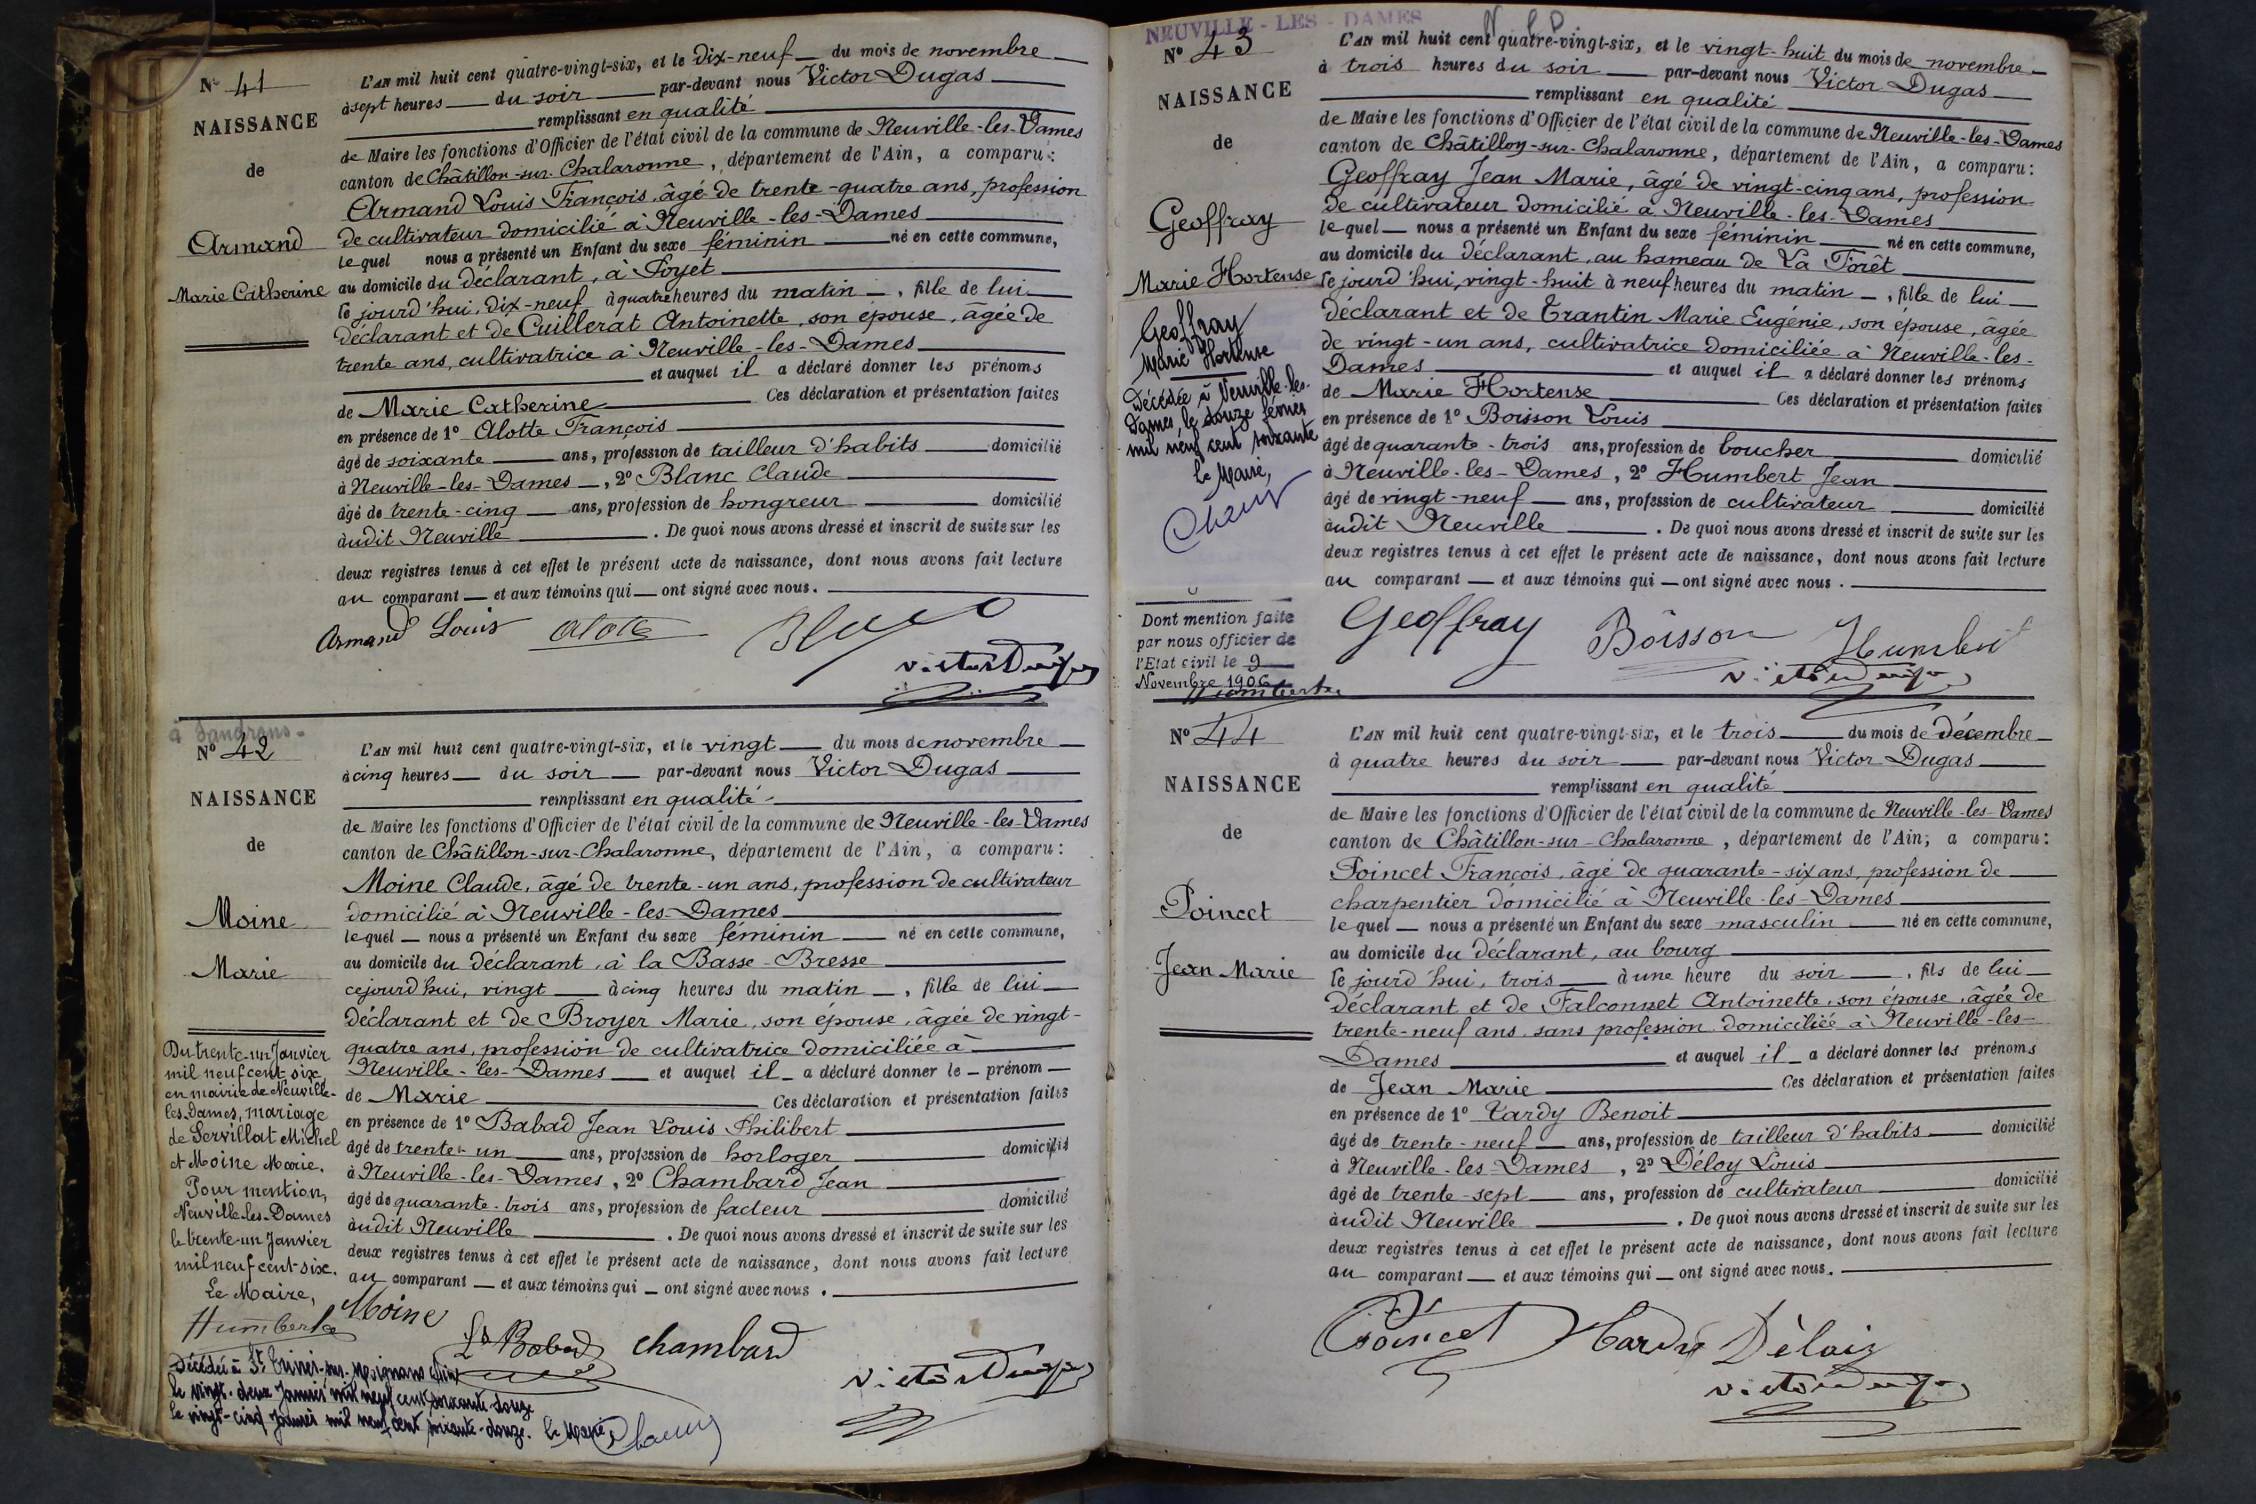 N° 41
NAISSANCE
de
Armand
Marie Catherine
L'AN mil huit cent quatre-vingt-six, et le dix-neuf du mois de novembre
à sept heures du soir par-devant nous Victor Dugas
remplissant en qualité
de Maire les fonctions d'Officier de l'état civil de la commune de Neuville-les-Dames
canton de Châtillon-sur-Chalaronne, département de l'Ain, a comparu:
Armand Louis François, âgé de trente-quatre ans, profession
de cultivateur domicilié à Neuville-les-Dames
lequel nous a présenté un Enfant du sexe féminin né en cette commune,
au domicile du déclarant, à Poyet
le jourd'hui, dix-neuf à quatre heures du matin, fille de lui
déclarant et de Cuillerat Antoinette, son épouse, âgée de
trente ans, cultivatrice à Neuville-les-Dames
et auquel il a déclaré donner les prénoms
de Marie Catherine Ces déclaration et présentation faites
en présence de 1° Alotte François
âgé de soixante ans, profession de tailleur d'habits domicilié
à Neuville-les-Dames, 2° Blanc Claude
âgé de trente-cinq ans, profession de hongreur domicilié
àudit Neuville. De quoi nous avons dressé et inscrit de suite sur les
deux registres tenus à cet effet le présent acte de naissance, dont nous avons fait lecture
au comparant et aux témoins qui ont signé avec nous.
Armand Louis Alotte Blanc
Victor Dugas
à Sandrans
N° 42
NAISSANCE
de
Moine
Marie
Du trente-un Janvier
mil neuf cent six
en mairie de Neuville-
les-Dames, mariage
de Servillat Michel
et Moine Marie.
Pour mention,
Neuville-les-Dames
le trente-un Janvier
mil neuf cent-six.
Le Maire,
Humbert
L'AN mil huit cent quatre-vingt-six, et le vingt du mois de novembre
à cinq heures du soir par-devant nous Victor Dugas
remplissant en qualité
de Maire les fonctions d'Officier de l'état civil de la commune de Neuville-les-Dames
canton de Châtillon-sur-Chalaronne, département de l'Ain, a comparu:
Moine Claude, âgé de trente-un ans, profession de cultivateur
domicilié à Neuville-les-Dames
lequel nous a présenté un Enfant du sexe féminin né en cette commune,
au domicile du déclarant, à la Basse-Bresse
cejourd'hui, vingt à cinq heures du matin, fille de lui
déclarant et de Broyer Marie, son épouse, âgée de vingt-
quatre ans, profession de cultivatrice domiciliée à
Neuville-les-Dames et auquel il a déclaré donner le prénom
de Marie Ces déclaration et présentation faites
en présence de 1° Babad Jean Louis Philibert
âgé de trente-un ans, profession de horloger domicilié
à Neuville-les-Dames, 2° Chambard Jean
âgé de quarante-trois ans, profession de facteur domicilié
àudit Neuville. De quoi nous avons dressé et inscrit de suite sur les
deux registres tenus à cet effet le présent acte de naissance, dont nous avons fait lecture
au comparant et aux témoins qui ont signé avec nous.
Moine Ls Babad Chambard
Victor Dugas
Décédée à St Trivier-sur-Moignans (Ain)
le vingt-deux Janvier mil neuf cent soixante-douze
le vingt-cinq Janvier mil neuf cent soixante-douze. Le Maire,
NEUVILLE-LES-DAMES
N° 43
NAISSANCE
de
Geoffray
Marie Hortense
Geoffray
Marie Hortense
Décédée à Neuville-les-
Dames, le douze février
mil neuf cent soixante
Le Maire,
Dont mention faite
par nous officier de
l'Etat civil le 9
Novembre 1906
Humbert
L'AN mil huit cent quatre-vingt-six, et le vingt-huit du mois de novembre
à trois heures du soir par-devant nous Victor Dugas
remplissant en qualité
de Maire les fonctions d'Officier de l'état civil de la commune de Neuville-les-Dames
canton de Châtillon-sur-Chalaronne, département de l'Ain, a comparu:
Geoffray Jean Marie, âgé de vingt-cinq ans, profession
de cultivateur domicilié à Neuville-les-Dames
lequel nous a présenté un Enfant du sexe féminin né en cette commune,
au domicile du déclarant, au hameau de La Forêt
le jourd'hui, vingt-huit à neuf heures du matin, fille de lui
déclarant et de Trantin Marie Eugénie, son épouse, âgée
de vingt-un ans, cultivatrice domiciliée à Neuville-les-
Dames et auquel il a déclaré donner les prénoms
de Marie Hortense Ces déclaration et présentation faites
en présence de 1° Boisson Louis
âgé de quarante-trois ans, profession de boucher domicilié
à Neuville-les-Dames, 2° Humbert Jean
âgé de vingt-neuf ans, profession de cultivateur domicilié
àudit Neuville. De quoi nous avons dressé et inscrit de suite sur les
deux registres tenus à cet effet le présent acte de naissance, dont nous avons fait lecture
au comparant et aux témoins qui ont signé avec nous.
Geoffray Boisson Humbert
Victor Dugas
N° 44
NAISSANCE
de
Poincet
Jean Marie
L'AN mil huit cent quatre-vingt-six, et le trois du mois de décembre
à quatre heures du soir par-devant nous Victor Dugas
remplissant en qualité
de Maire les fonctions d'Officier de l'état civil de la commune de Neuville-les-Dames
canton de Châtillon-sur-Chalaronne, département de l'Ain, a comparu:
Poincet François, âgé de quarante-six ans, profession de
charpentier domicilié à Neuville-les-Dames
lequel nous a présenté un Enfant du sexe masculin né en cette commune,
au domicile du déclarant, au bourg
le jourd'hui, trois à une heure du soir, fils de lui
déclarant et de Falconnet Antoinette, son épouse, âgée de
trente-neuf ans, sans profession domiciliée à Neuville-les-
Dames et auquel il a déclaré donner les prénoms
de Jean Marie Ces déclaration et présentation faites
en présence de 1° Tardy Benoit
âgé de trente-neuf ans, profession de tailleur d'habits domicilié
à Neuville-les Dames, 2° Déloy Louis
âgé de trente-sept ans, profession de cultivateur domicilié
àudit Neuville. De quoi nous avons dressé et inscrit de suite sur les
deux registres tenus à cet effet le présent acte de naissance, dont nous avons fait lecture
au comparant et aux témoins qui ont signé avec nous.
Poincet Tardy Déloiy
Victor Dugas